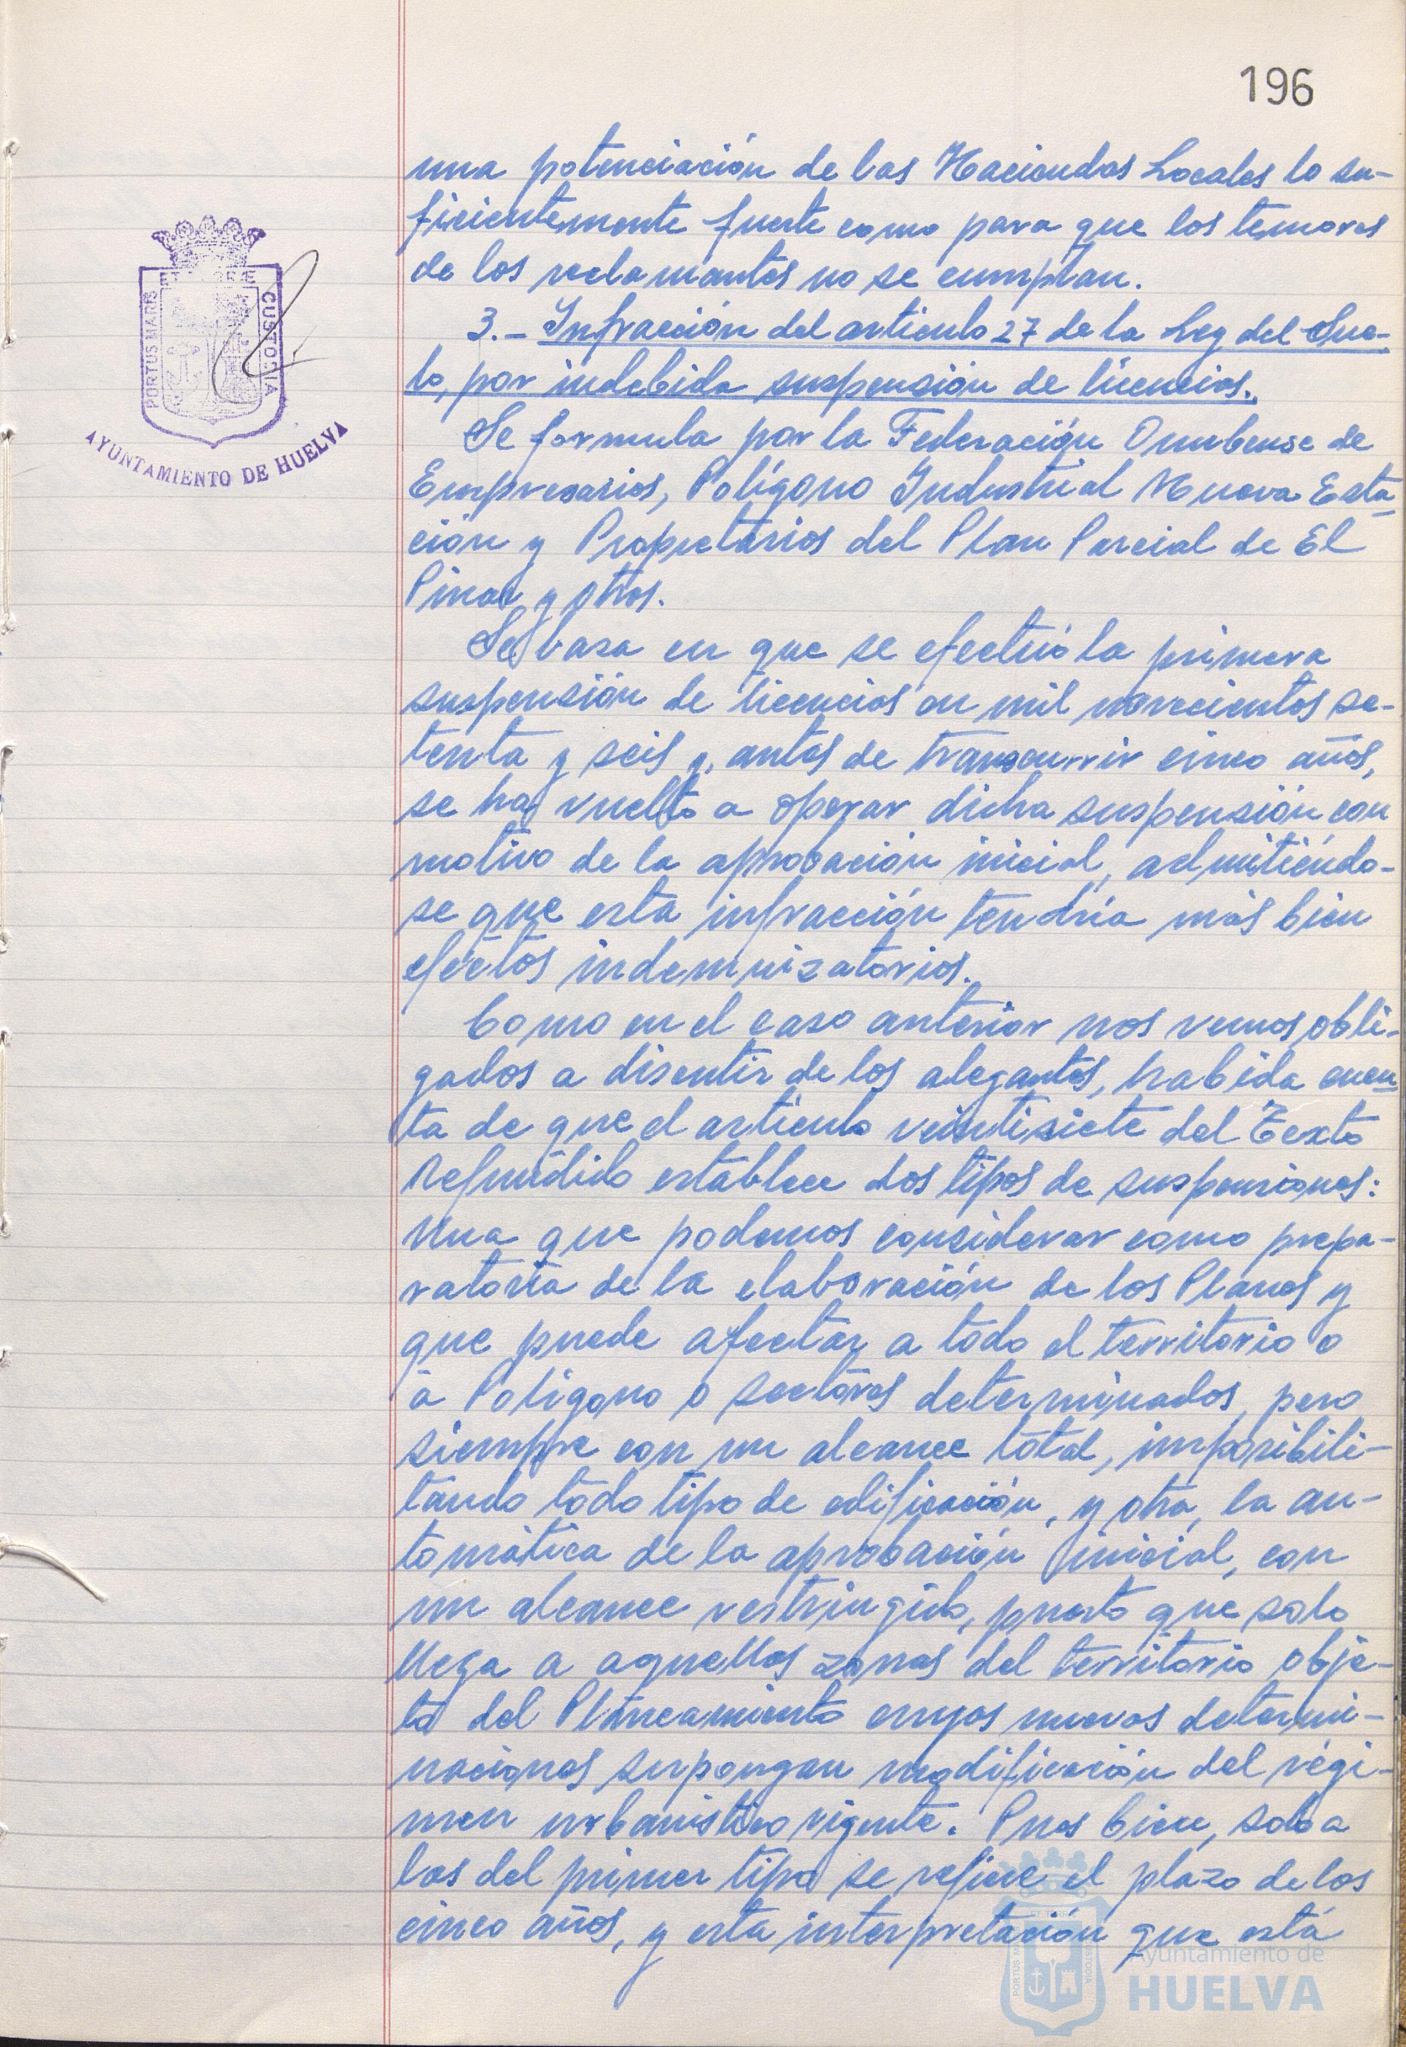 196
una potenciación de las Haciendas Locales lo su-
ficientemente fuerte como para que los temores
de los reclamantes no se cumplan.
3.- Infracción del articulo 27 de la Ley del Sue-
lo, por indebida suspensión de licencias.
Se formula por la Federación Onubense de
Empresarios, Polígono Industrial Nueva Esta-
ción y Propietarios del Plan Parcial de El
Pinar y otros.
Se basa en que se efectuó la primera
suspensión de licencias en mil novecientos se-
tenta y seis y, antes de transcurrir cinco años,
se ha vuelto a operar dicha suspensión con
motivo de la aprobación inicial, admitiéndo-
se que esta infracción tendría más bien
efectos indemnizatorios.
Como en el caso anterior nos vemos obli-
gados a disentir de los alegantes, habida cuen-
ta de que el articulo veintisiete del Texto
Refundido establece dos tipos de suspensiones:
Una que podemos considerar como prepa-
ratoria de la elaboración de los Planes y
que puede afectar a todo el territorio o
a Polígono o sectores determinados, pero
siempre con un alcance total, imposibili-
tando todo tipo de edificación, y otra, la au-
tomática de la aprobación inicial, con
un alcance restringido, puesto que solo
llega a aquellas zonas del territorio obje-
to del Planeamiento cuyas nuevas determi-
naciones supongan modificación del régi-
men urbanístico vigente. Pues bien, solo a
las del primer tipo se refiere el plazo de los
cinco años, y esta interpretación que está
PORTUS MARIS
ET TERRE
CUSTODIA
AYUNTAMIENTO DE HUELVA
Ayuntamiento de
HUELVA